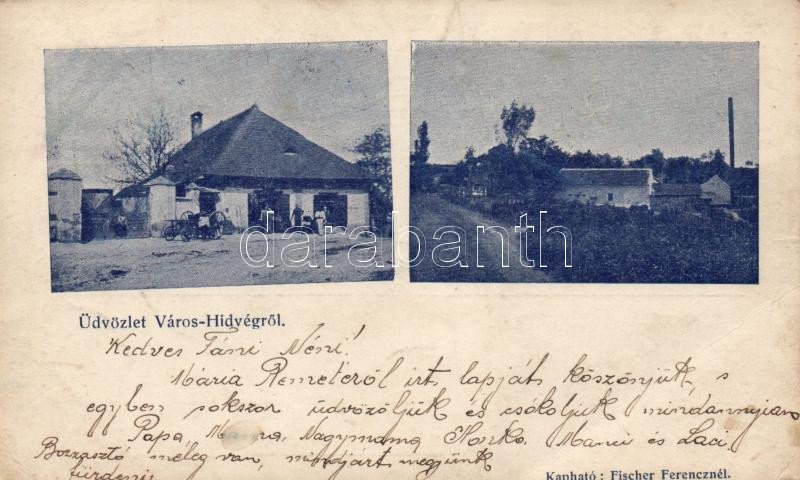 darabanth
Üdvözlet Város-Hidvégről.
Kedves Fáni Néni!
Mária Remetéről irt lapját köszönjük, s
egyben sokszor üdvözöljük és csókoljuk mindannyian
Papa, Nagymama Manci és Laci.
Borzasztó meleg van, mindjárt megyünk
fürdeni
Kapható: Fischer Ferencznél.